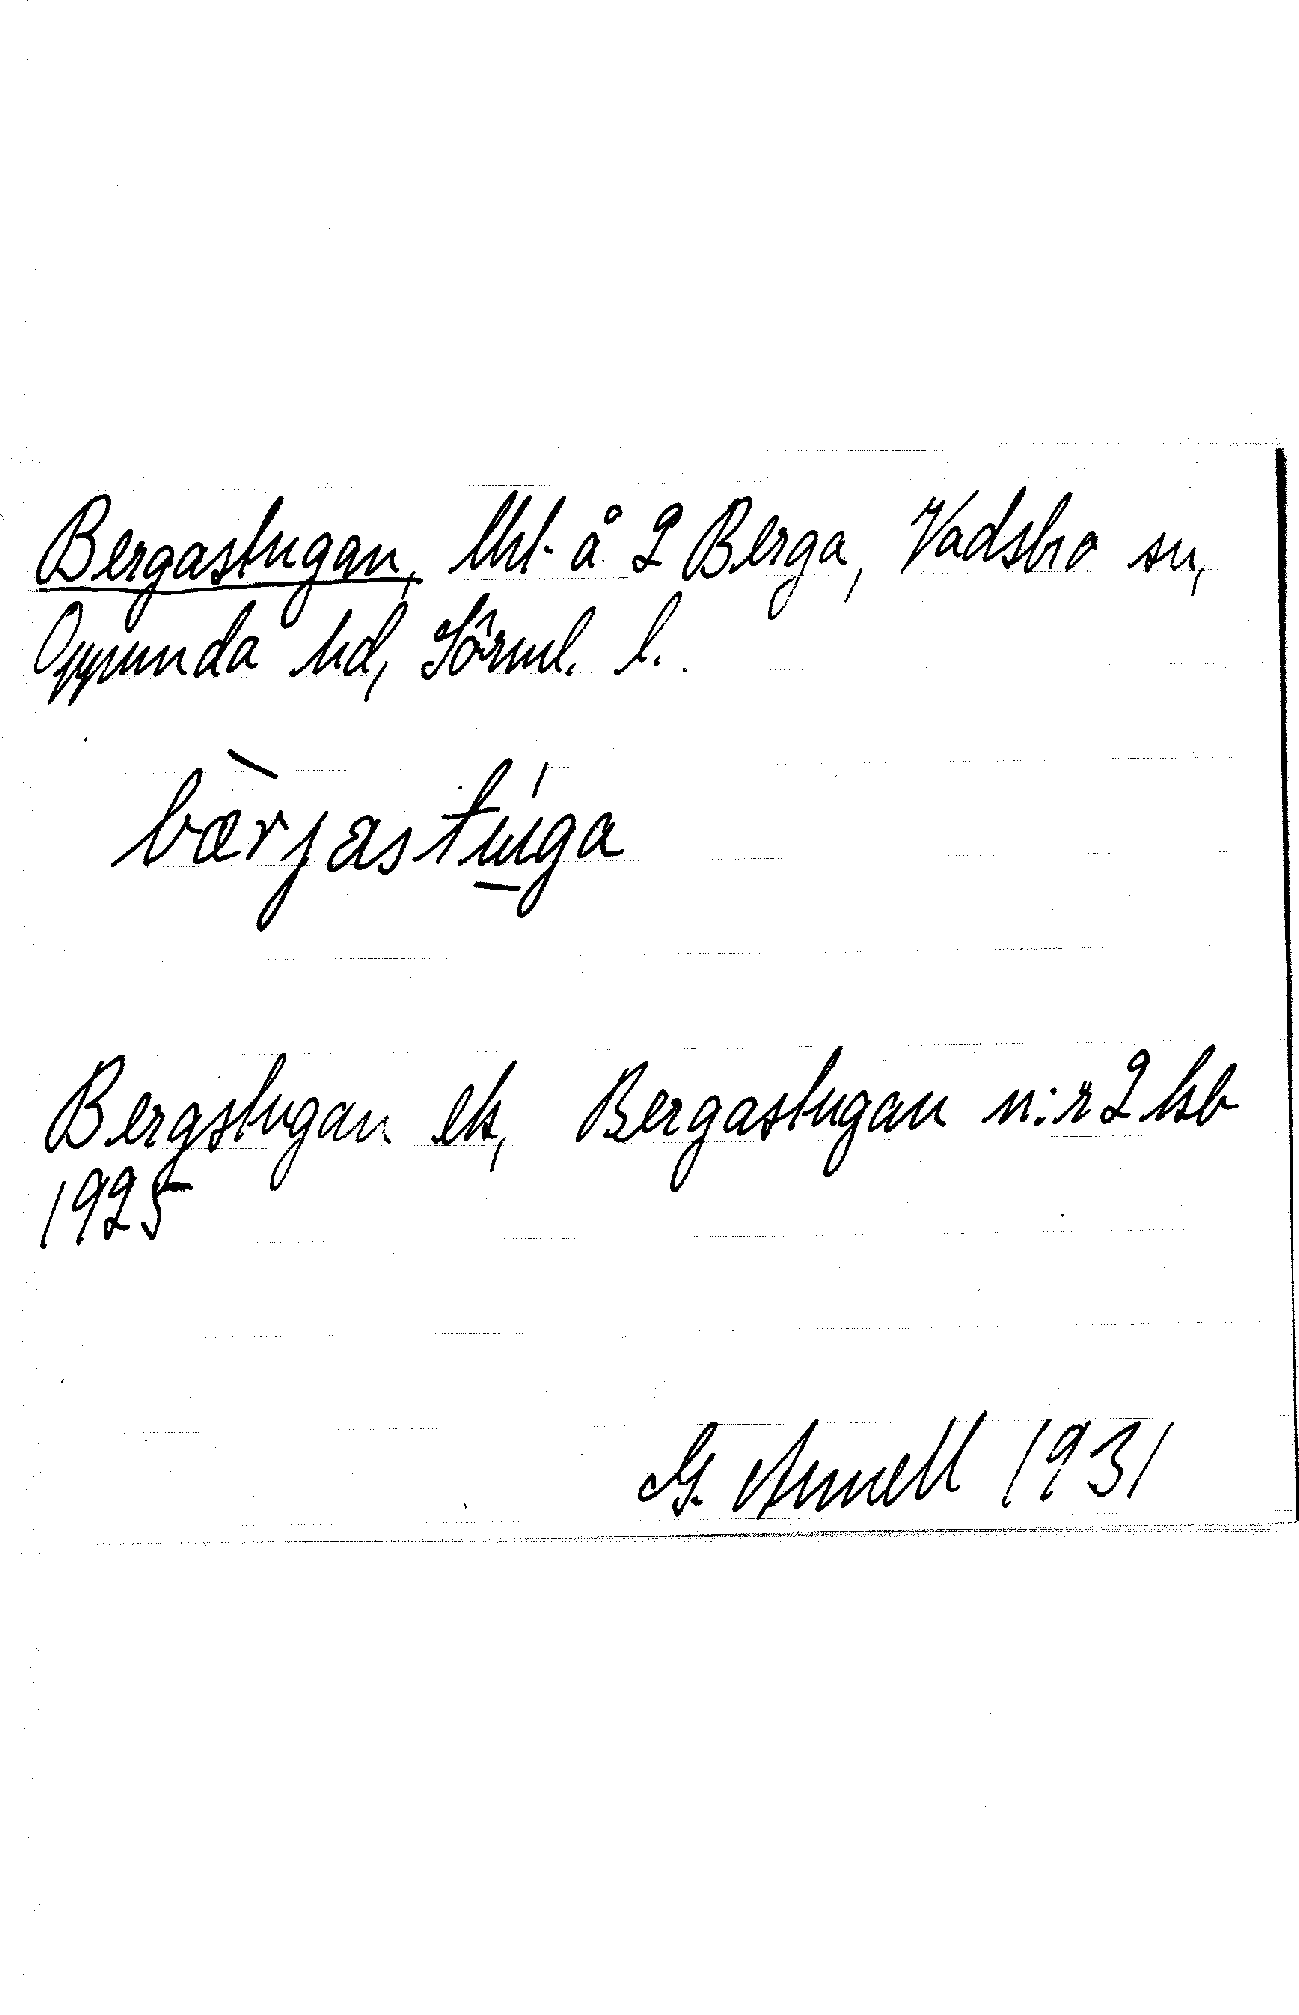 Bergastugan, lht. å 2 Berga, Vadsbro sn,
Oppunda hd, Sörml. l.
bærjastuga
Bergstugan ek, Bergastugan n:r 2 kb
1925
G. Annell 1931